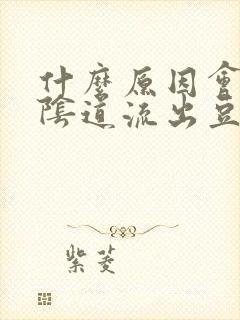 什麼原因會
陰道流出豆
紫菱